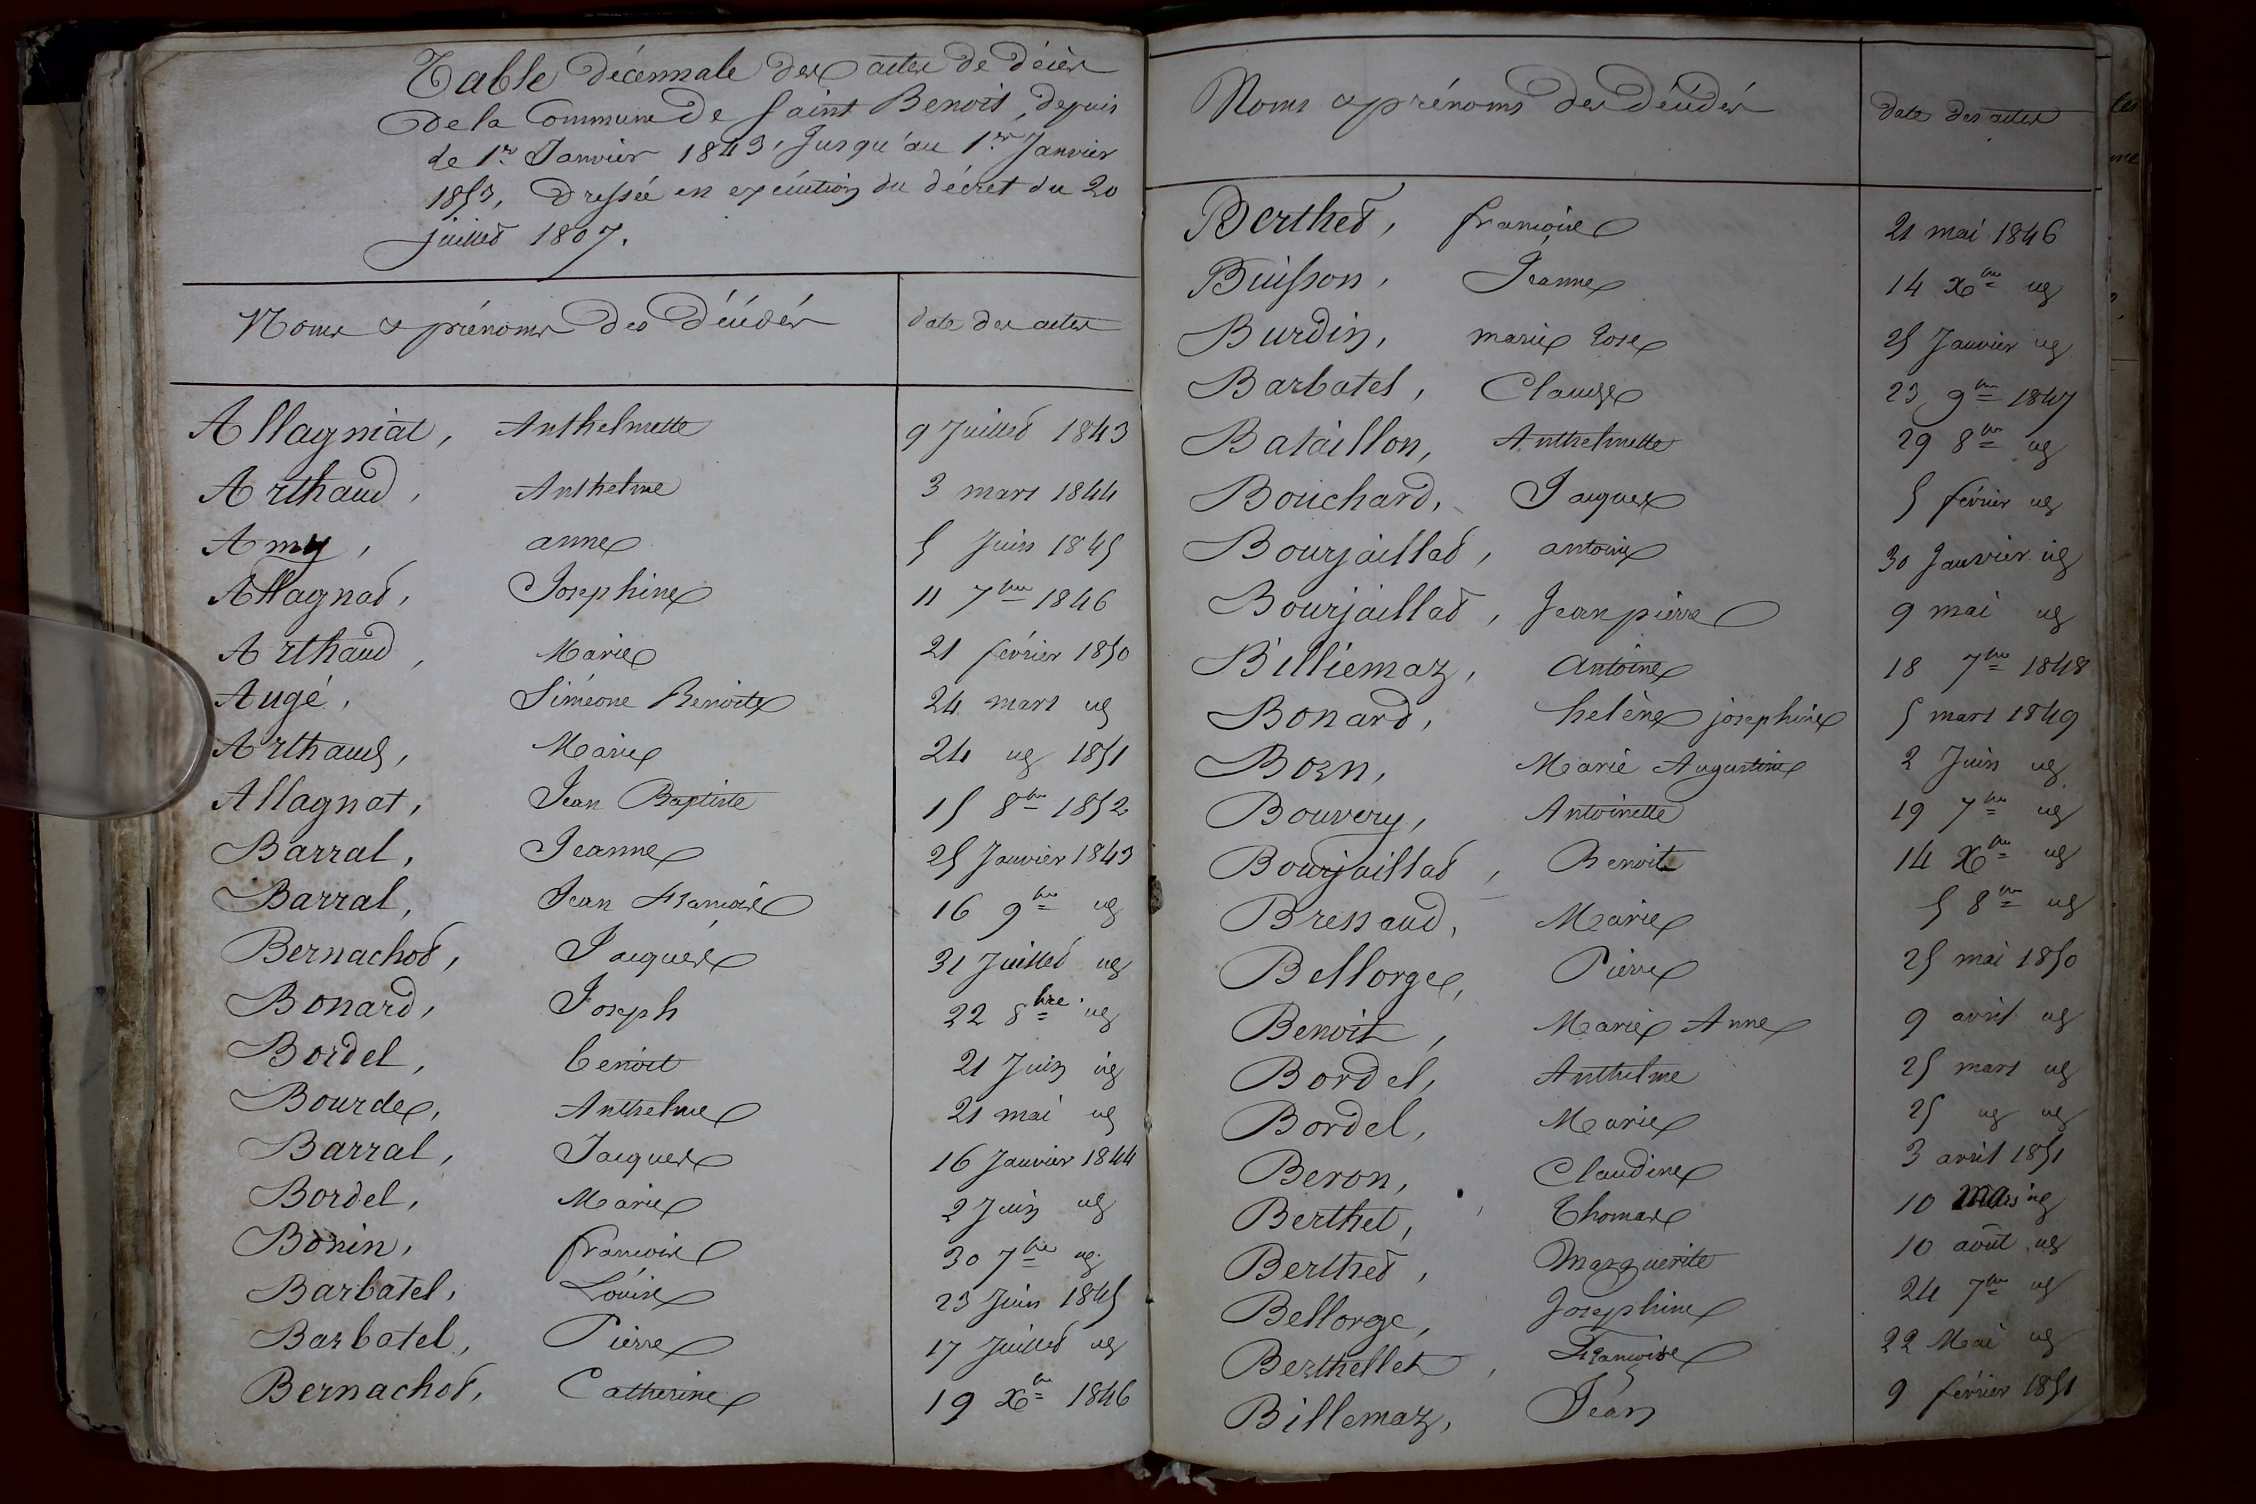 Table décennale des actes de décès
de la Commune de Saint Benoit, depuis
de 1er Janvier 1843, Jusqu'au 1er Janvier
1853, Dressée en exécution du décret du 20
juillet 1807.
Noms & prénoms des décédés date des actes
Allagniat, Anthelmette 9 Juillet 1843
Arthaud, Anthelme 3 mars 1844
Amy, anne 5 Juin 1845
Allagnat, Josephine 11 7bre 1846
Arthaud, Marie 21 février 1850
Augé, Siméone Benoite 24 mars id
Arthaud, Marie 24 id 1851
Allagnat, Jean Baptiste 15 8bre 1852
Barral, Jeanne 25 Janvier 1843
Barral, Jean François 16 9bre id
Bernachot, Jacques 31 Juillet id
Bonard, Joseph 22 8bre id
Bordel, benoit 21 Juin id
Bourde, Anthelme 21 mai id
Barral, Jacques 16 Janvier 1844
Bordel, Marie 2 Juin id
Bonin, francoise 30 7bre id
Barbatel, Louise 23 Juin 1845
Barbatel, Pierre 17 Juillet id
Bernachot, Catherine 19 Xbre 1846
Noms & prénoms des décédés date des actes
Berthet, francoise 21 mai 1846
Buisson, Jeanne 14 Xbre id
Burdin, marie rose 25 Janvier id
Barbatel, Claude 23 9bre 1847
Bataillon, Anthelmette 29 8bre id
Bouchard, Jacques 5 février id
Bourjaillat, antoine 30 Janvier id
Bourjaillat, Jean pierre 9 mai id
Billiemaz, Antoine 18 7bre 1848
Bonard, helène josephine 5 mars 1849
Born, Marie Augustine 2 Juin id
Bouvery, Antoinette 19 7bre id
Bourjaillat, Benoit 14 Xbre id
Bressaud, Marie 5 8bre id
Bellorge, Pierre 25 mai 1850
Benoit, Marie Anne 9 avril id
Bordel, Anthelme 25 mars id
Bordel, Marie 25 id id
Beron, Claudine 3 avril 1851
Berthet, Thomas 10 mars id
Berthet, Marguerite 10 août id
Bellorge, Josephine 24 7bre id
Berthellet, Françoise 22 Mai id
Billemaz, Jean 9 février 1851